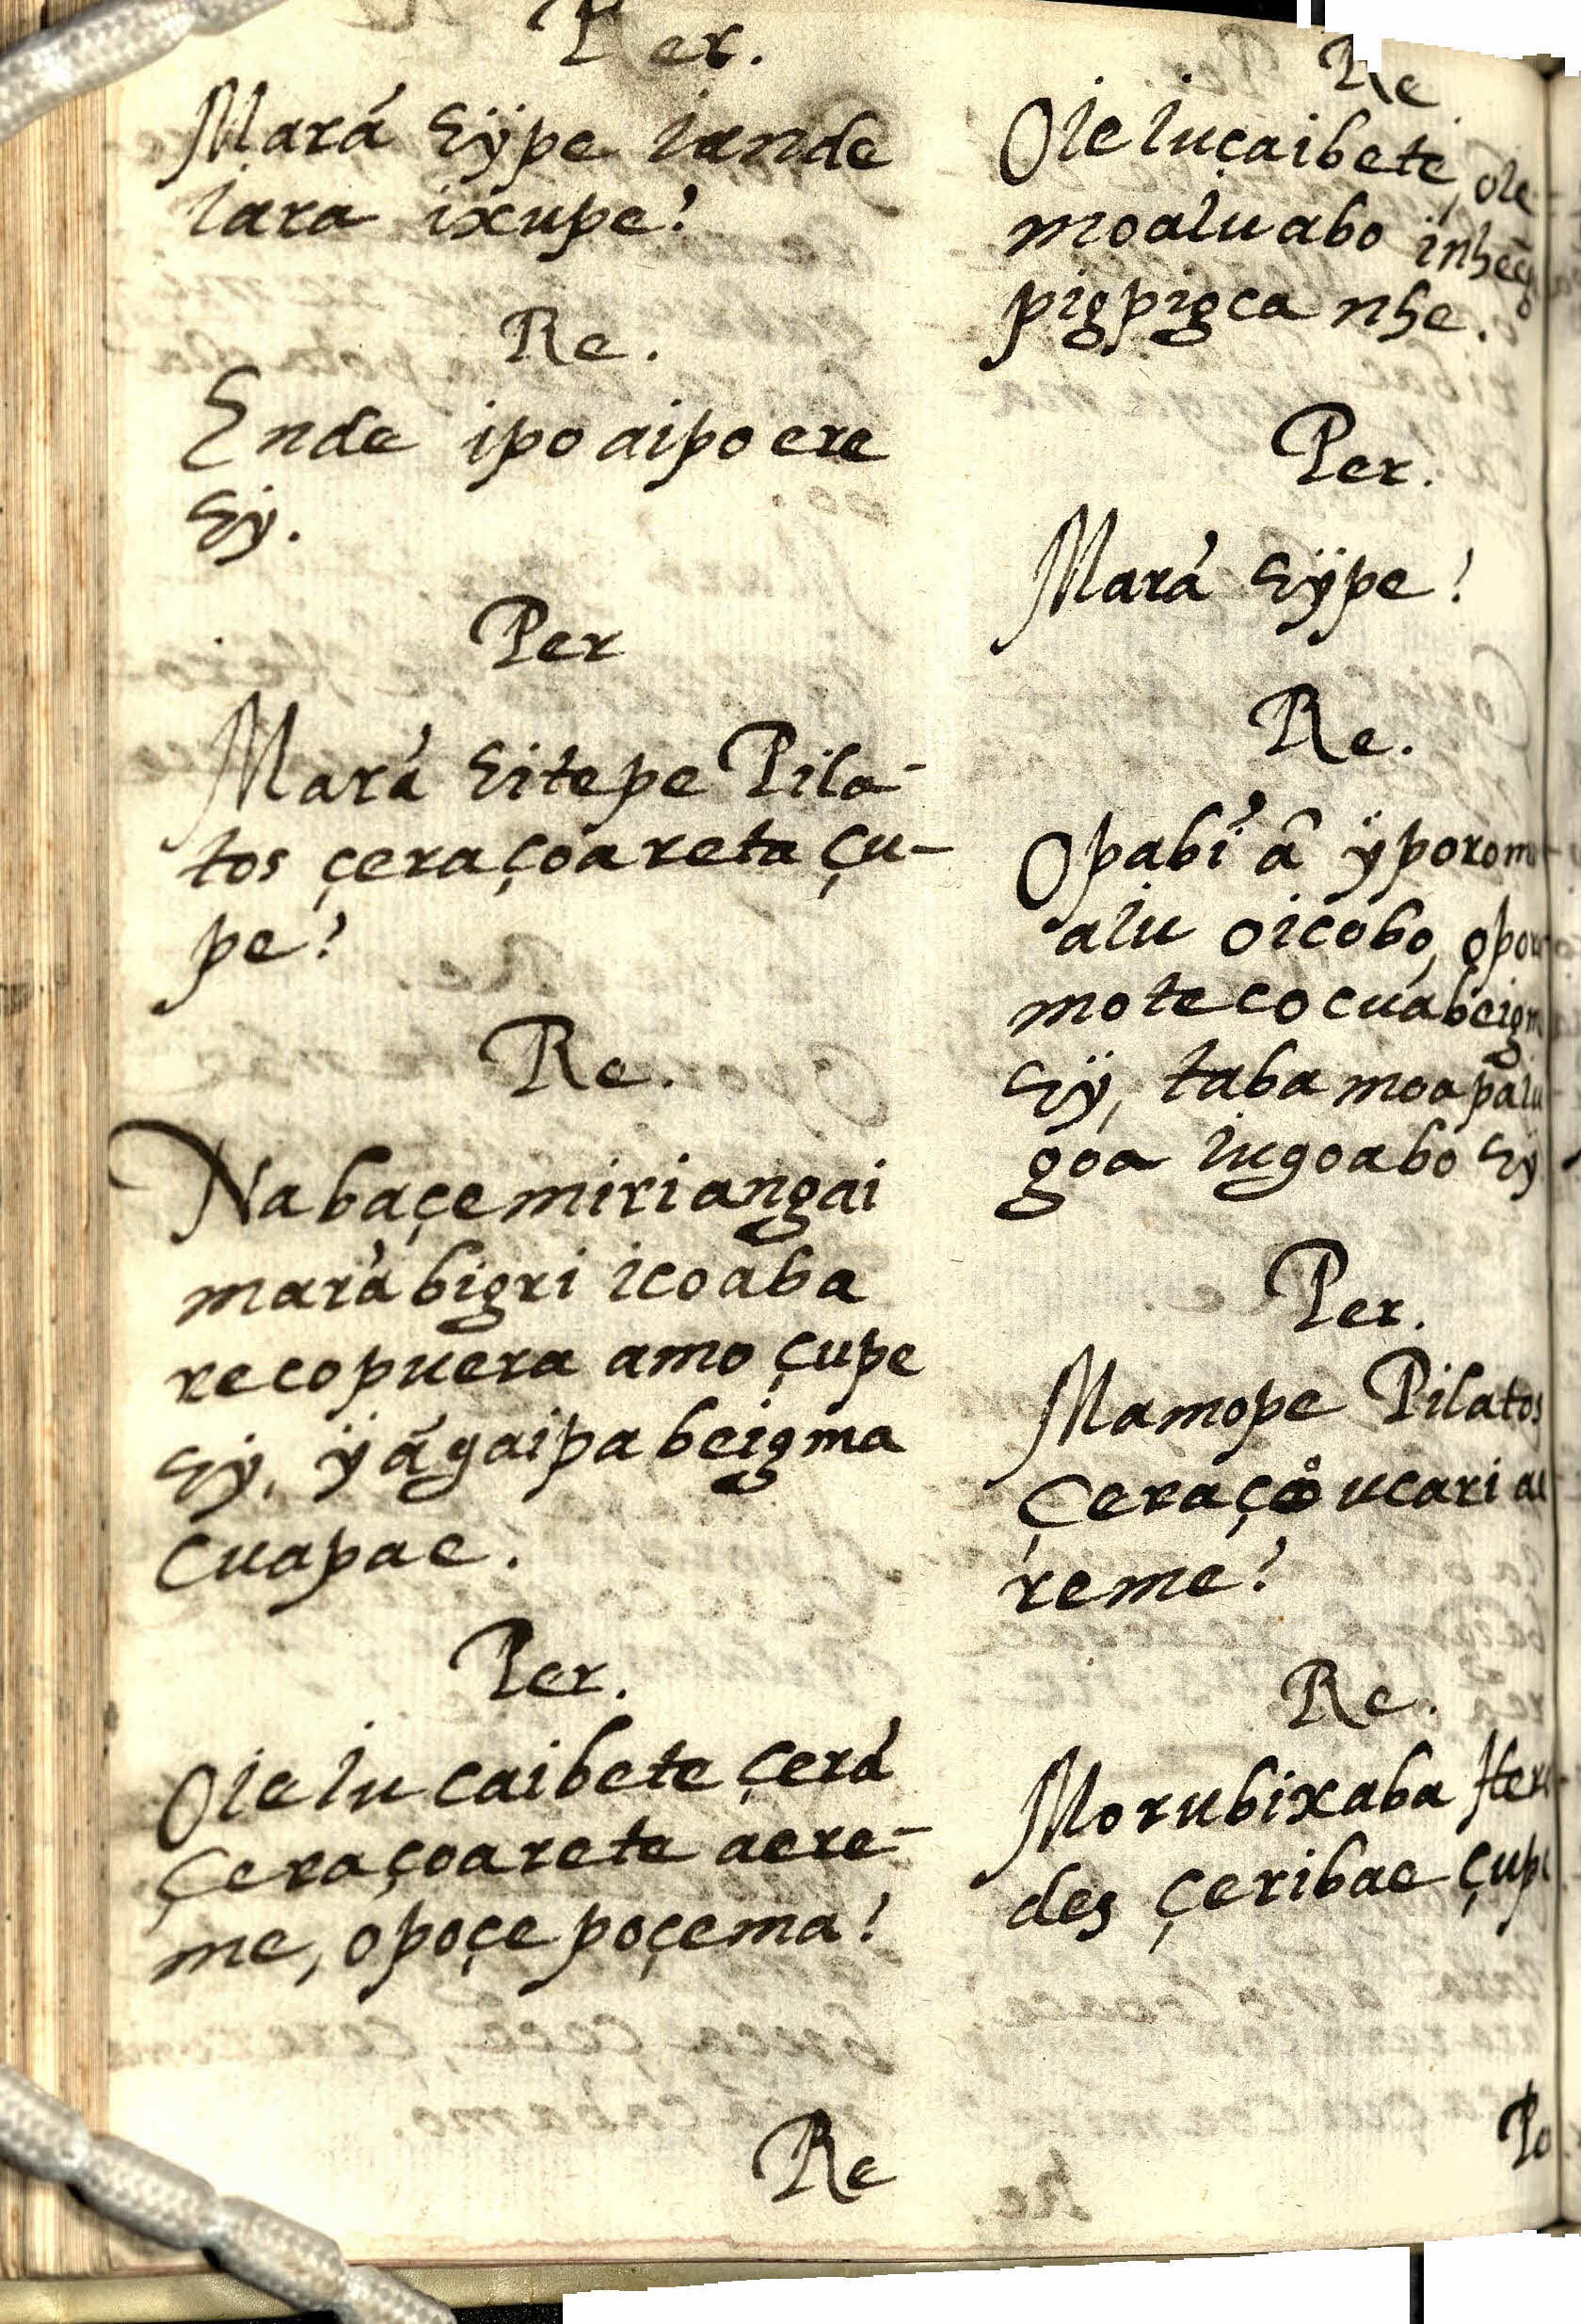 Per.
Mará Eÿpe iande
iara ixupe?
Re.
Ende ipo aipo ere
Eÿ.
Per
Mará Eitepe Pila-
tos çeraçoareta çu-
pe?
Re.
Nabaçemiriangai
marábigri icoaba
recopuera amo çupe
Eÿ, ÿ ãgaipabeigma
cuapae.
Per.
Oieiucaibete çerá
çeraçoareta aere-
me, opoçepoçema?
Re
Re
Oieiuçaibete, oie
moaiuabo
pigpigca nhe.
Per.
Mará Eÿpe?
Re.
Opabí â
aiu oicobo,
motecocuabeigm
Eÿ, taba
goa iugoabo Eÿ
Per.
Mamope Pilatos
Çeraço ucari
reme?
Re.
Morubixaba
des çeribae